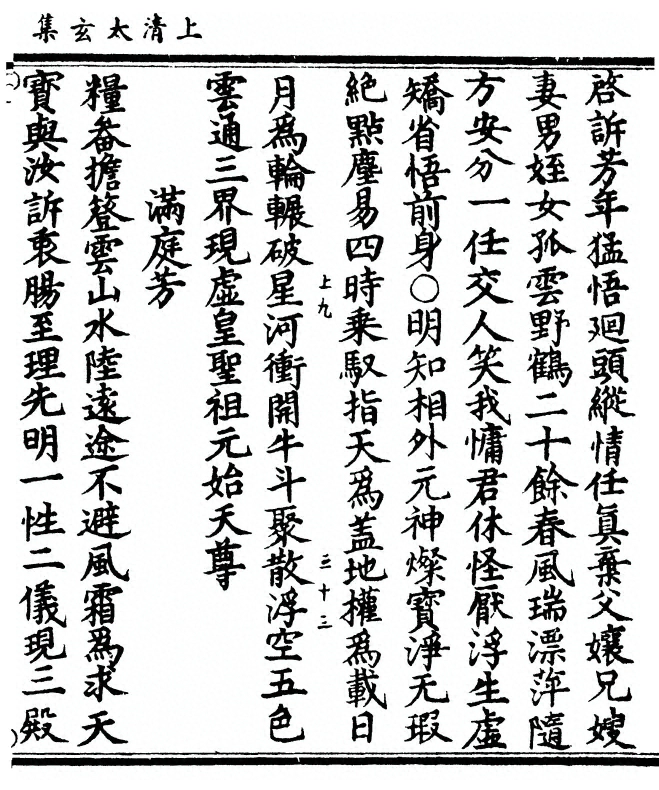 上清太玄集
啓訴芳年猛悟廻頭縱情任眞棄父孃兄嫂
妻男姪女孤雲野鶴二十餘春風瑞漂萍隨
方安分一任交人笑我慵君休怪厭浮生虛
矯省悟前身○明知相外元神燦寶淨无瑕
絶點塵易四時乗馭指天爲盖地權爲載日
上九
三十三
月爲輪輾破星河衝開牛斗聚散浮空五色
雲通三界現虛皇聖祖元始天尊
滿庭芳
糧畚擔簦雲山水陸逺途不避風霜爲求天
寳與汝訴衷腸至理先明一性二儀現三殿